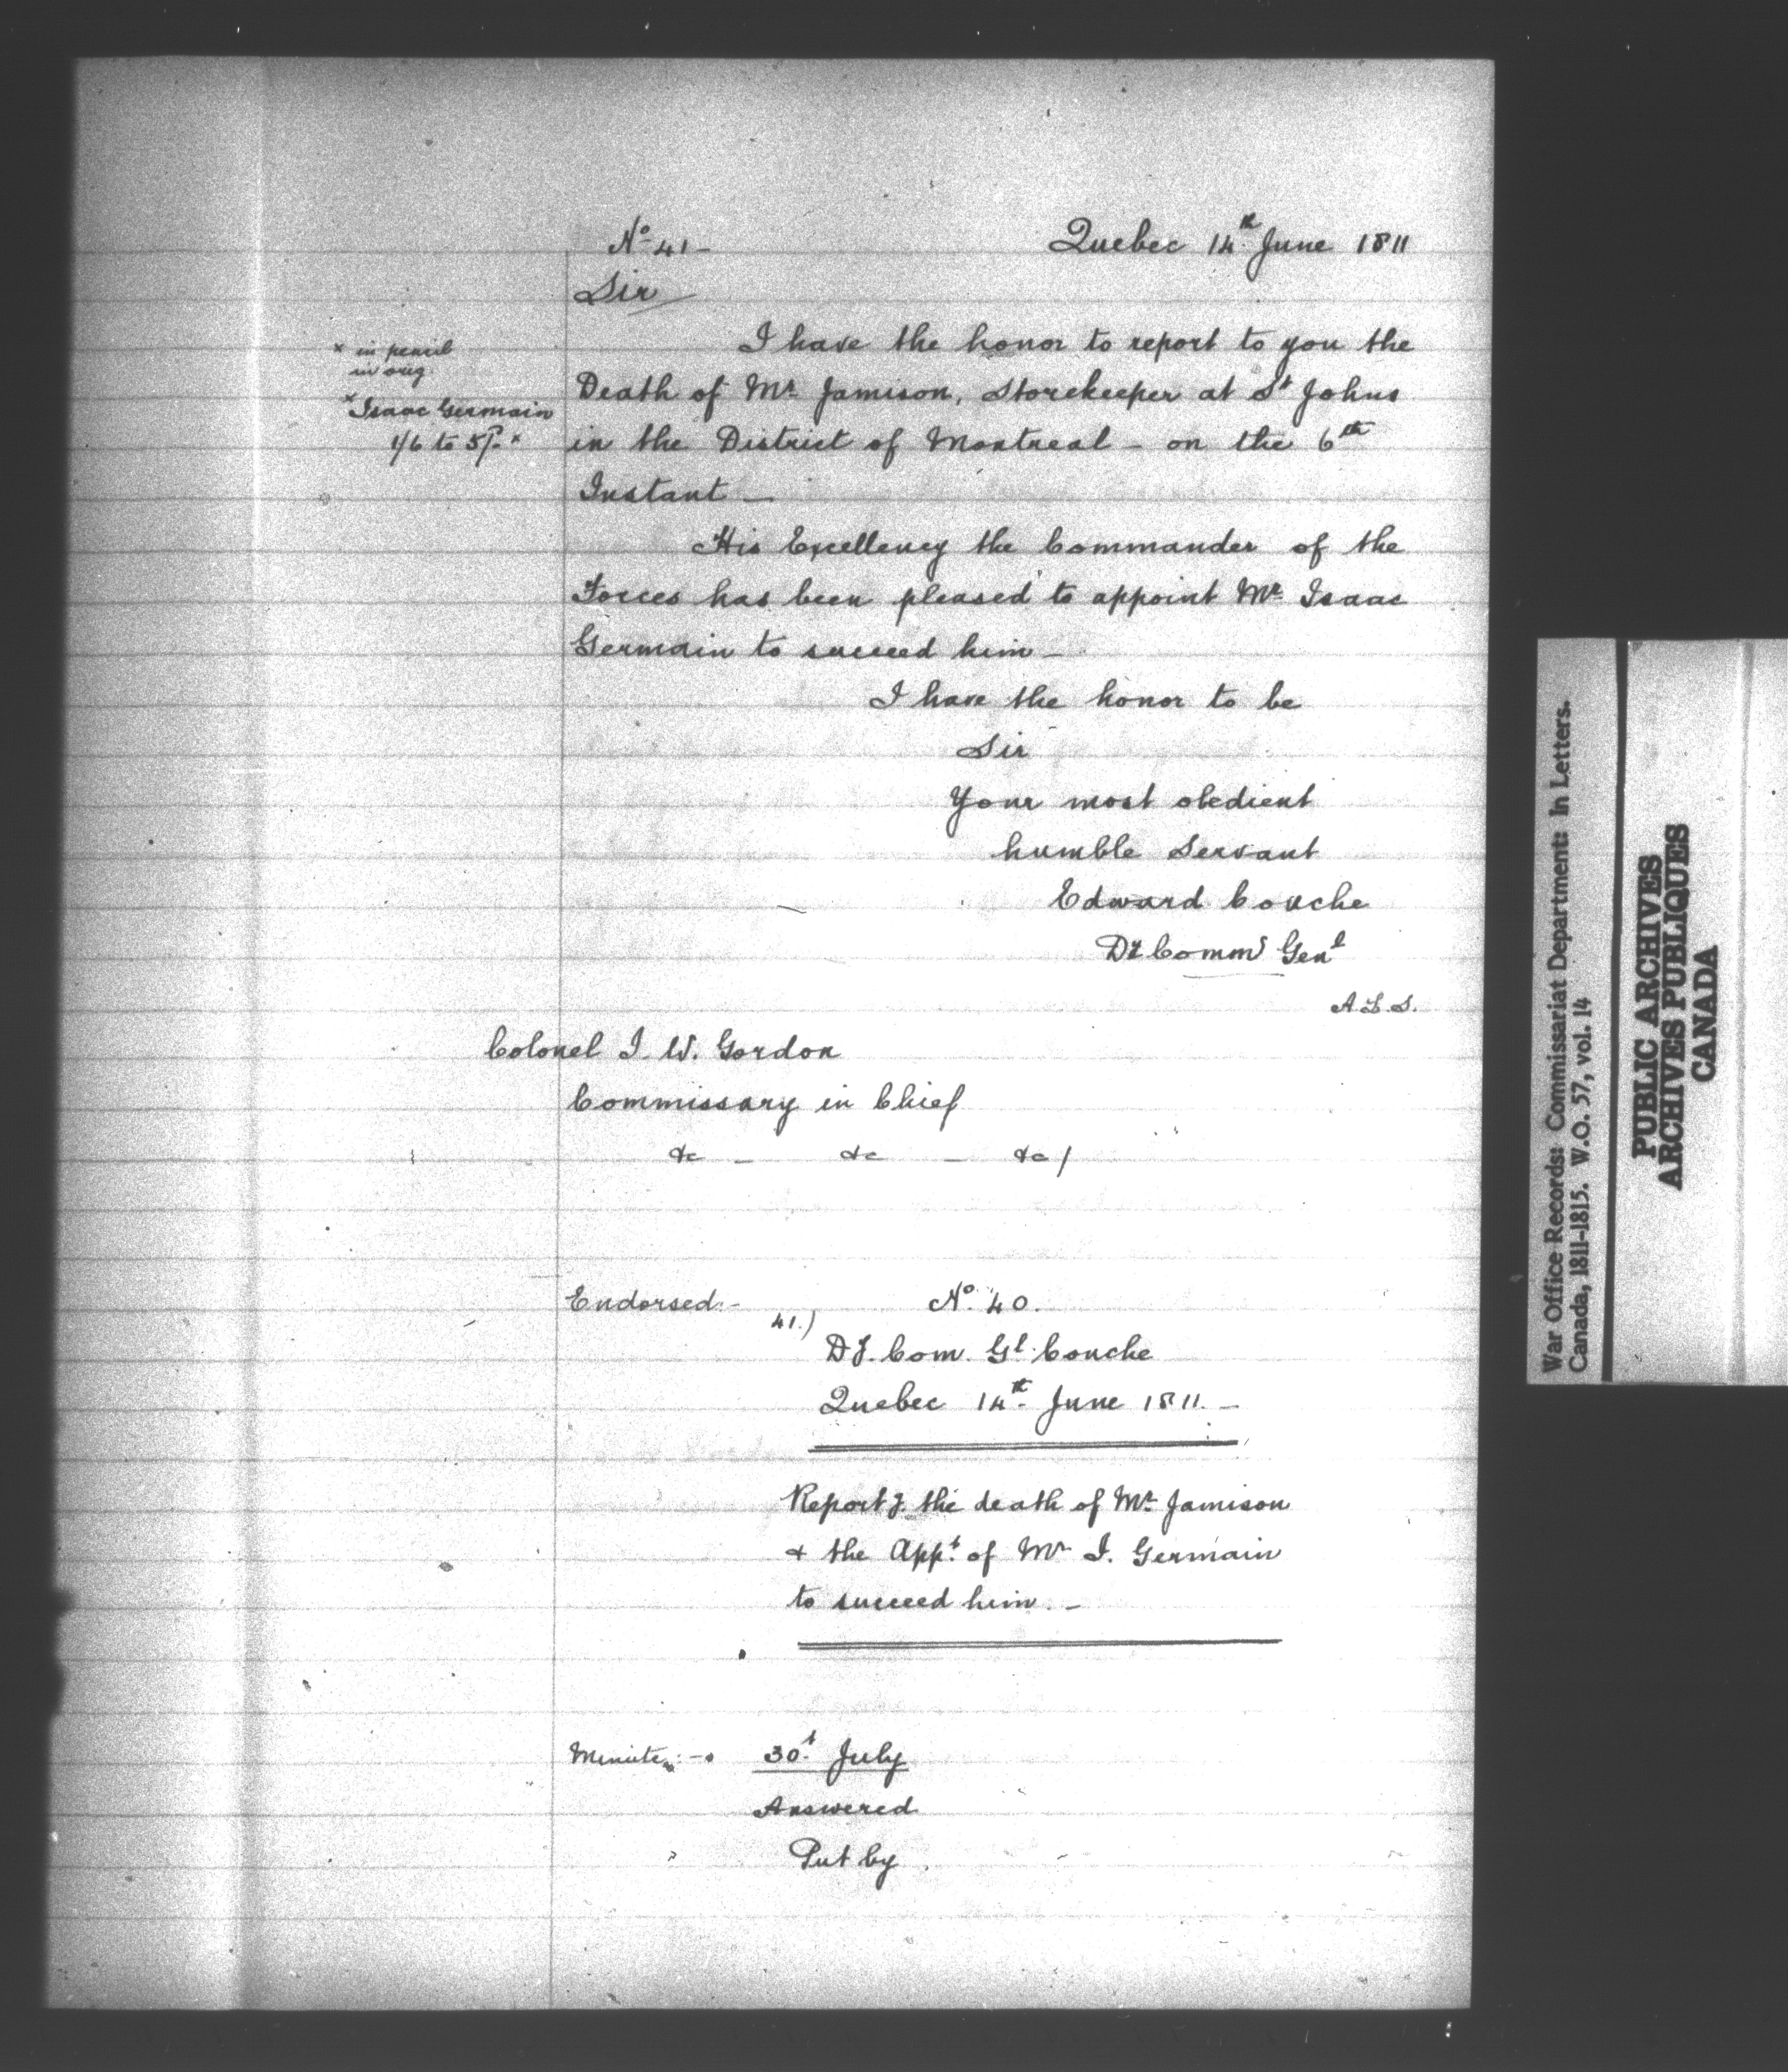 No 41- Quebec 14th June 1811
Sir
I have the honor to report to you the
x in pencil
in orig.
Death of Mr Jamison, Storekeeper at St Johns
x Isaac Germain
in the District of Montreal - on the 6th
1/6 to 5/- x
Instant -
His Excellency the Commander of the
Forces has been pleased to appoint Mr Isaac
Germain to succeed him -
I have the honor to be
Sir
Your most obedient
humble Servant
Edward Couche
Dy Commy Genl
A.L.S.
Colonel J. W. Gordon
Commissary in Chief
&c - &c - &c /
Endorsed:- No 40.
41.)
Dy. Com. Gl. Couche
Quebec 14th June 1811. -
Reportg. the death of Mr Jamison
& the Appt. of Mr I. Germain
to succeed him. -
Minute:- 30t July
Answered
Put by.
War Office Records: Commissariat Department: In Letters.
Canada, 1811-1815. W.O. 57, vol. 14
PUBLIC ARCHIVES
ARCHIVES PUBLIQUES
CANADA